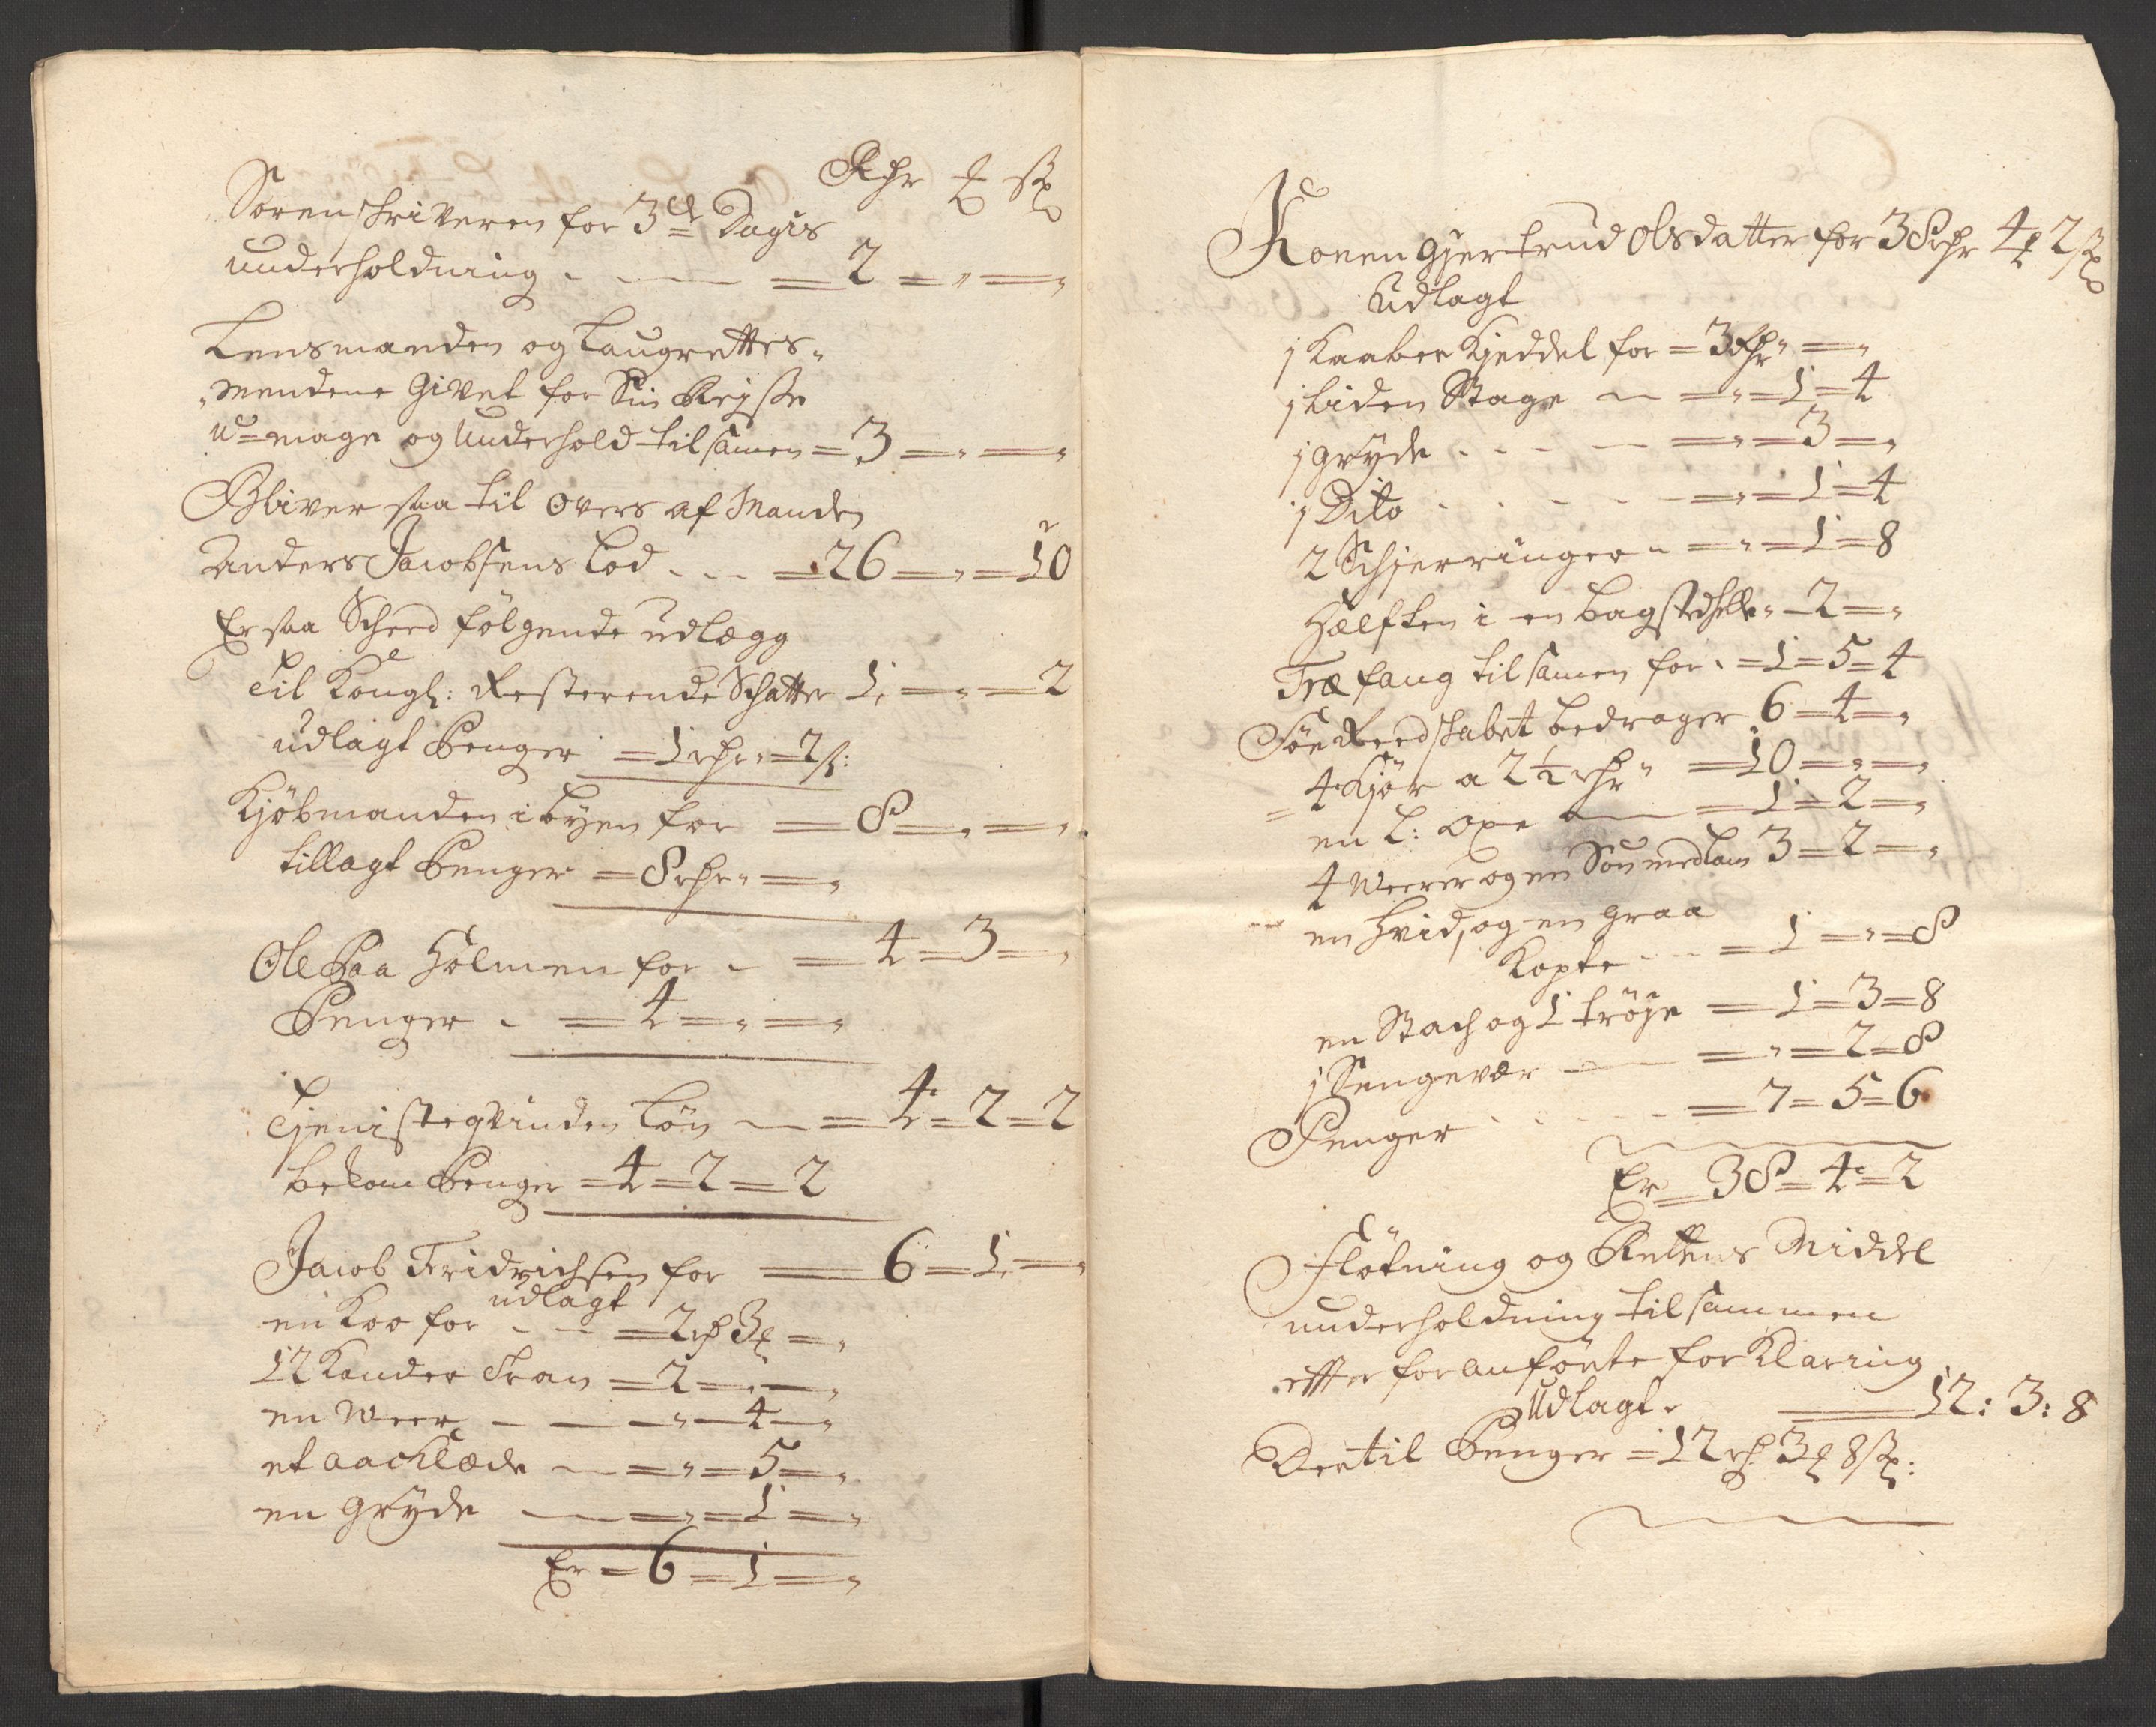 Rdr ℔ sk
Sorenschriveren for 3de Dagis
underholdning . — = 2 = „ = „
Lensmanden og Laugrettes-
mendene Givet for Sin Reisse
u-mage og Underhold tilsamen = 3 = „ = „
Bliver saa til overs af Manden
Anders Jacobsens Lod . . . = 26 = „ = 10
Er saa Scheed fölgende udlægg
Til Kongl: Resterende Schatter 1 = „ = 2
udlagt Penger = 1 rdr „ = 2 s:
Kjöbmanden i byen for = 8 = „ = „
tillagt Penger = 8 rdr „ = „
Ole Paa Holmen for - = 4 = 3 = „
Penger . = 4 = „ = „
Tjenisteqvinden Lön — = 4 = 2 = 2
bekom Penger = 4 = 2 = 2
Jacob Fridrichsen for = 6 = 1 = „
udlagt
en Koe for - - = 2 rd 3 ℔ = „
12 Kander Tran = 2 = „ = „
en Weer — — „ — 4 — „
et aaclæde — = „ = 5 = „
en gryde — = „ = 1 = „
Er = 6 = 1 = „
Konen Gjertrud Olsdatter for 38 rdr 4 ℔ 2 sk
Udlagt
j Kaaber Kjeddel for = 3 rdr „ = „
j liden Stage — = „ = 1 = 4
j gryde . . - — = „ = 3 = „
j Dito . . - - — = „ = 1 = 4
2 Schjerringer - = „ = 1 = 8
Hælften i en bagstehelle „ — 2 = „
Træfang tilsamen for . = 1 = 5 = 4
Söe Reedskabet bedrager 6 = 4 = „
4 Kjör a 2½ rdr „ = 10 = „ = „
en l: oxe — = 1 = 2 = „
4 Weerer og en Sou med Lam 3 = 2 = „
en hvid, og en graa
Kopte - - = 1 = „ = 8
en Stach og 1 tröje = 1 = 3 = 8
j Sengevær — = „ = 2 = 8
Penger . . . - — = 7 = 5 = 6
Er = 38 = 4 = 2
Flötning og Rettens Middel
underholdning tilsammen
effter foranförte forklaring
Udlagt. 12: 3: 8
Dertil Penger = 12 rd 3 ℔ 8 sk: